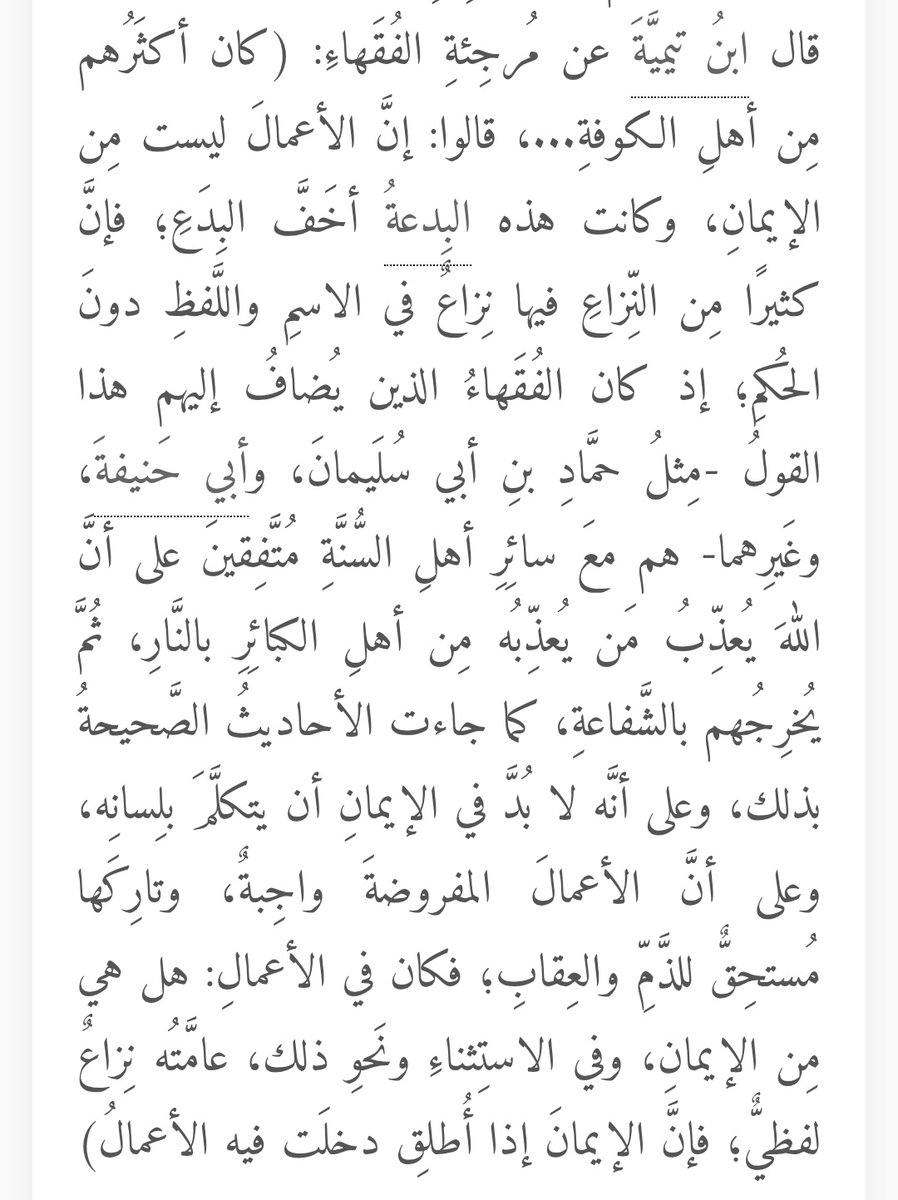 قال ابنُ تيميَّةَ عن مُرجِئةِ الفُقَهاءِ: (كان أكثَرُهم
مِن أهلِ الكوفةِ...، قالوا: إنَّ الأعمالَ ليست مِن
الإيمانِ، وكانت هذه البِدعةُ أخَفَّ البِدَعِ؛ فإنَّ
كثيرًا مِن النِّزاعِ فيها نِزاعٌ في الاسمِ واللَّفظِ دونَ
الحُكمِ؛ إذ كان الفُقَهاءُ الذين يُضافُ إليهم هذا
القولُ -مِثلُ حمَّادِ بنِ أبي سُلَيمانَ، وأبي حَنيفةَ،
وغَيرِهما- هم معَ سائِرِ أهلِ السُّنَّةِ مُتَّفِقينَ على أنَّ
اللهَ يُعذِّبُ مَن يُعذِّبُه مِن أهلِ الكبائِرِ بالنَّارِ، ثُمَّ
يُخرِجُهم بالشَّفاعةِ، كما جاءت الأحاديثُ الصَّحيحةُ
بذلك، وعلى أنَّه لا بُدَّ في الإيمانِ أن يتكلَّمَ بلِسانِه،
وعلى أنَّ الأعمالَ المفروضةَ واجِبةٌ، وتارِكَها
مُستحِقٌّ للذَّمِّ والعِقابِ؛ فكان في الأعمالِ: هل هي
مِن الإيمانِ، وفي الاستِثناءِ ونَحوِ ذلك، عامَّتُه نِزاعٌ
لفظيٌّ؛ فإنَّ الإيمانَ إذا أُطلِق دخلَت فيه الأعمالُ)